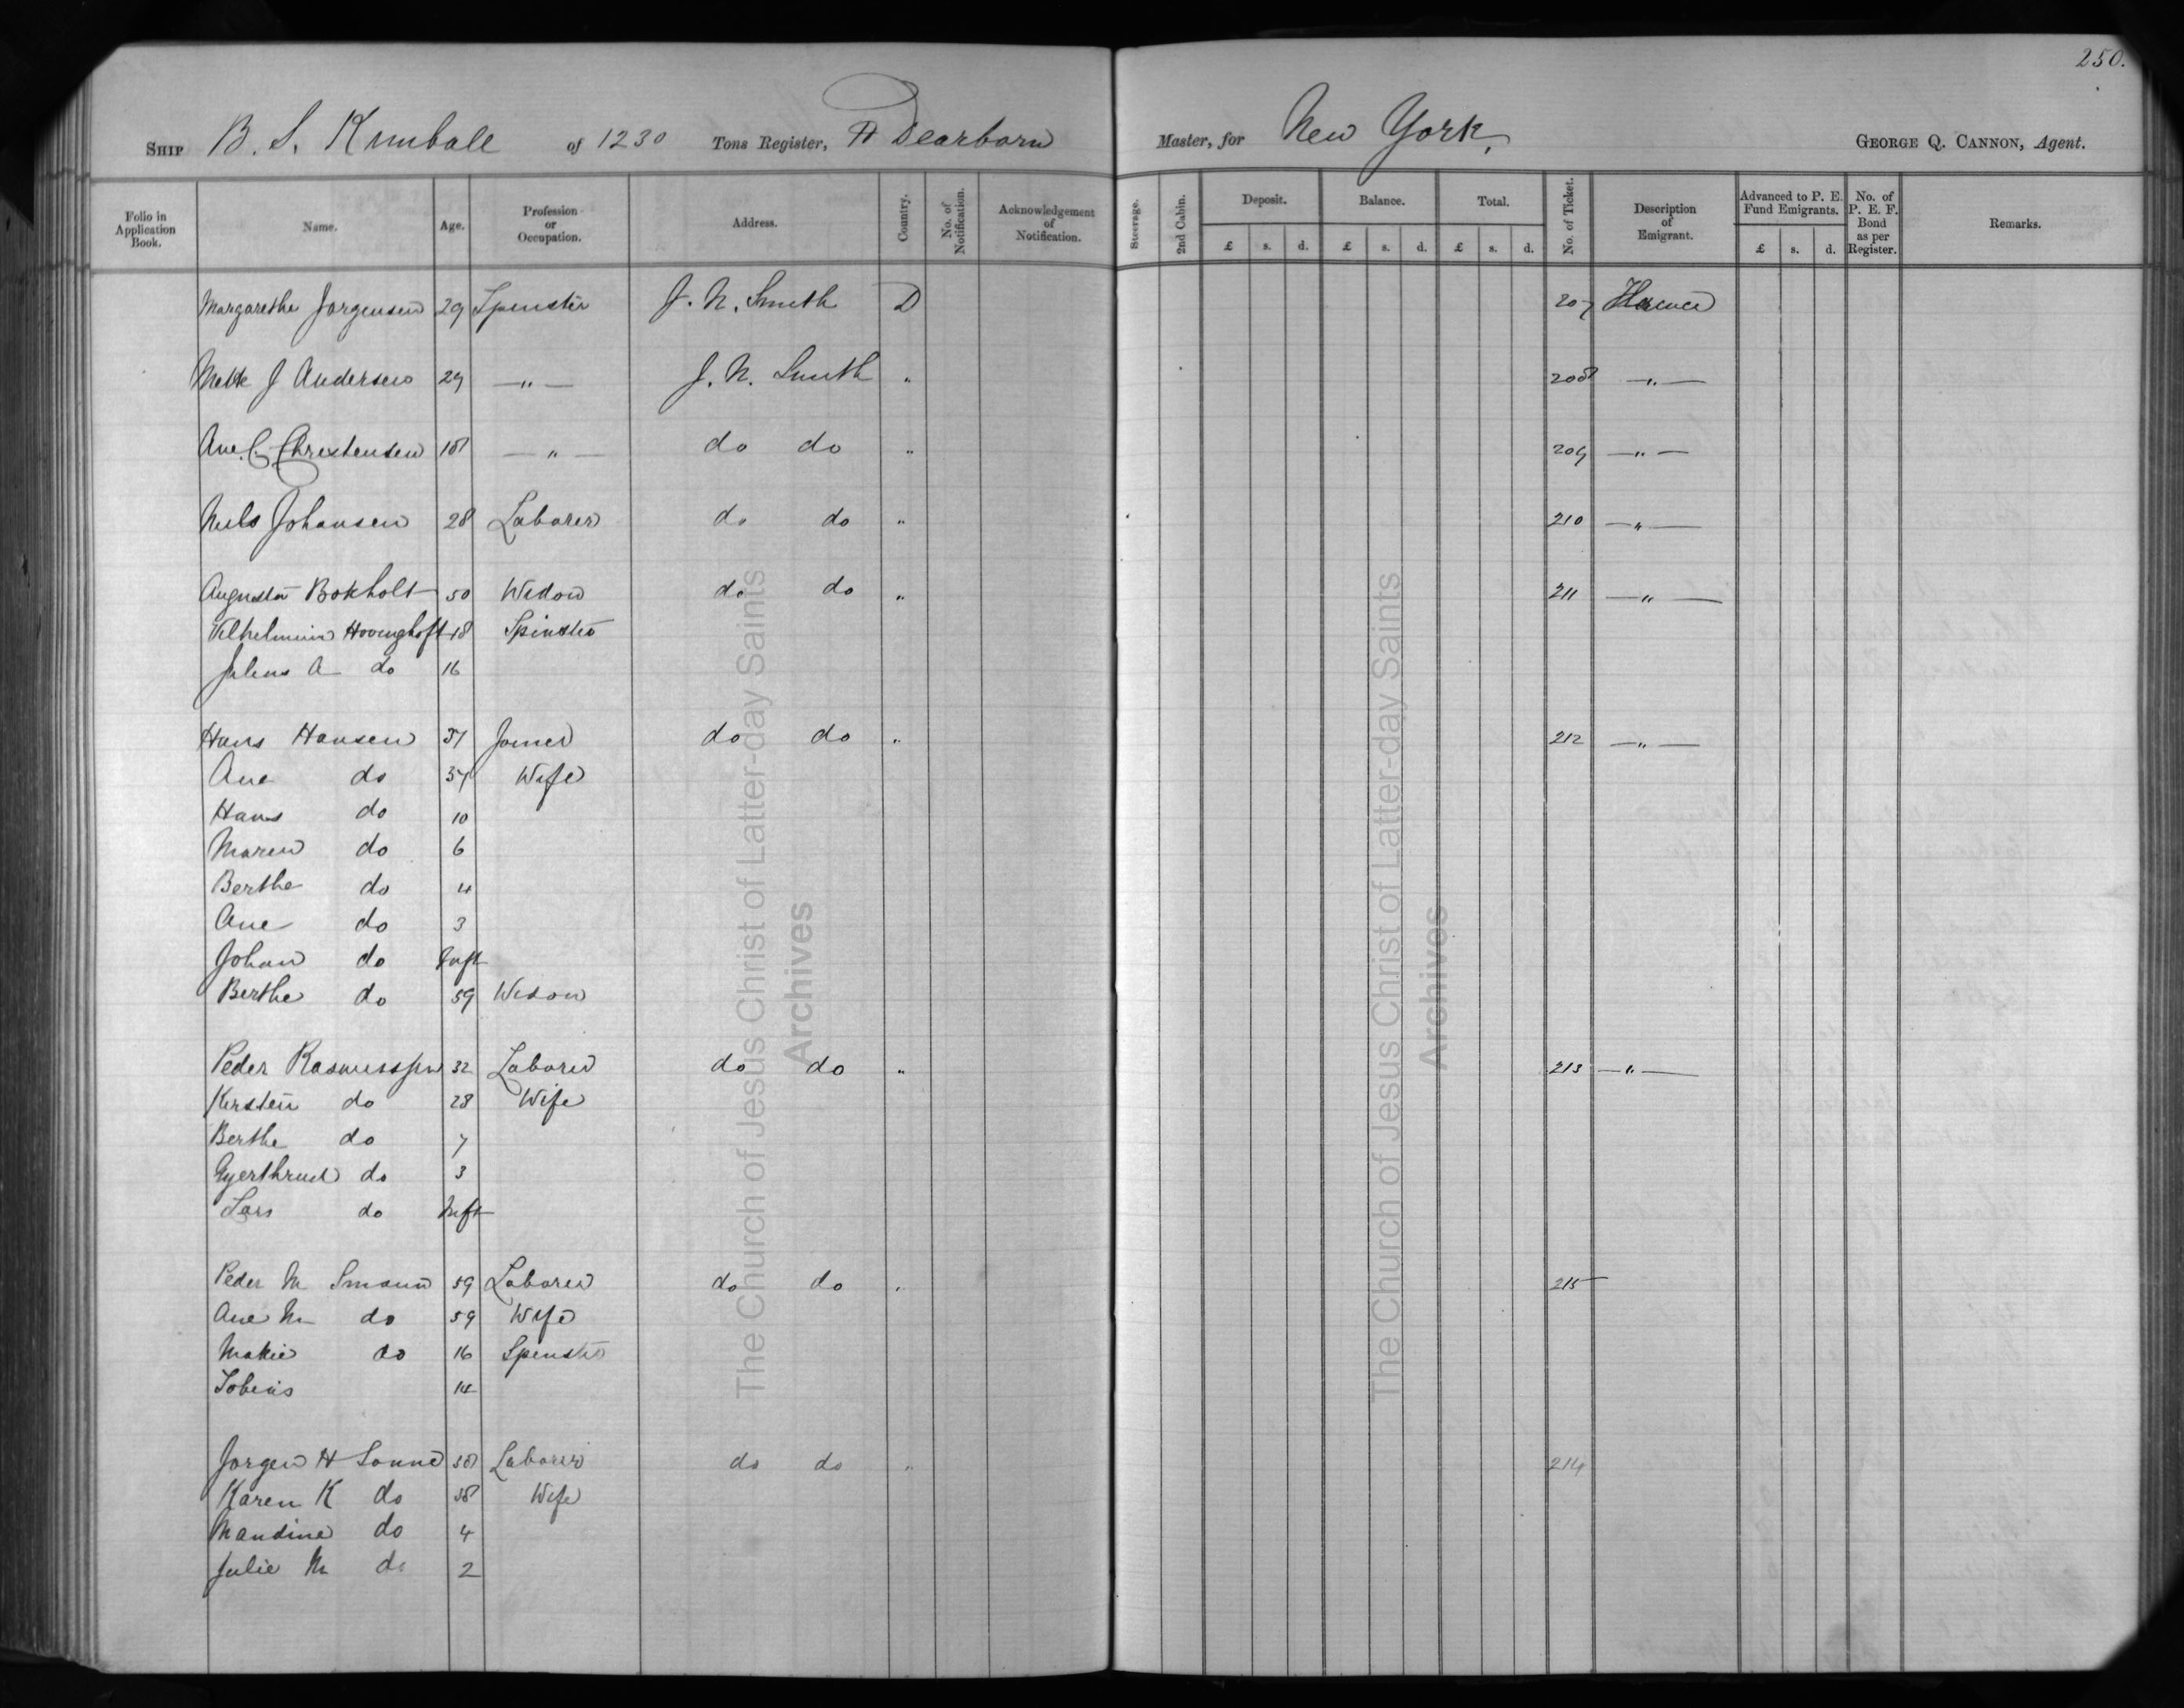 250.
SHIP B. S. Kimball of 1230 Tons Register, H Dearborn Master, for New York. GEORGE Q. CANNON, Agent.
Folio in Application Book. Name. Age. Profession or Occupation. Address. Country. No. of Notification. Acknowledgement of Notification. Steerage. 2nd Cabin. Deposit. Balance. Total. No. of Ticket. Description of Emigrant. Advanced to P. E. Fund Emigrants. No. of P. E. F. Bond as per Register. Remarks.
£ s. d. £ s. d. £ s. d. £ s. d.
Margarethe Jorgensen 29 Spinster J. N. Smith D 207 Florence
Mette J Andersen 29 —"— J. N. Smith " 208 —"—
Ane C. Christensen 18 —"— do do " 209 —"—
Niels Johansen 28 Laborer do do " 210 —"—
Augusta Bokholt 50 Widow do do " 211 —"—
Vilhelmine 18 Spinster
Julius A do 16
Hans Hansen 37 Joiner do do " 212 —"—
Ane do 37 Wife
Hans do 10
Maren do 6
Berthe do 4
Ane do 3
Johan do Inft
Berthe do 59 Widow
Peder Rasmussen 32 Laborer do do " 213 —"—
Kirsten do 28 Wife
Berthe do 7
Gyerthrud do 3
Lars do Inft
Peder M 59 Laborer do do " 215
Ane M do 59 Wife
do 16 Spinster
Tobias 14
Jorgen H Sonne 38 Laborer do do " 214
Karen K do 38 Wife
Mandine do 4
Julie M do 2
The Church of Jesus Christ of Latter-day Saints
Archives
The Church of Jesus Christ of Latter-day Saints
Archives